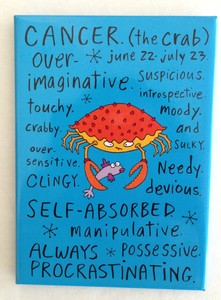 CANCER. (the crab)
over- * june 22. july 23.
imaginative. suspicious.
touchy. * introspective.
crabby. moody.
over- and
sensitive. sulky.
CLINGY. Needy.
devious.
SELF-ABSORBED.
* manipulative.
ALWAYS * possessive.
PROCRASTINATING.